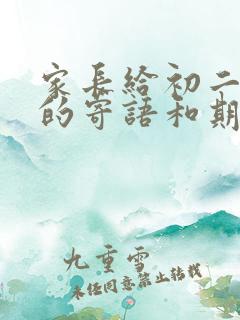 家长给初二
的寄语和期
九重雪
未经同意禁止转载